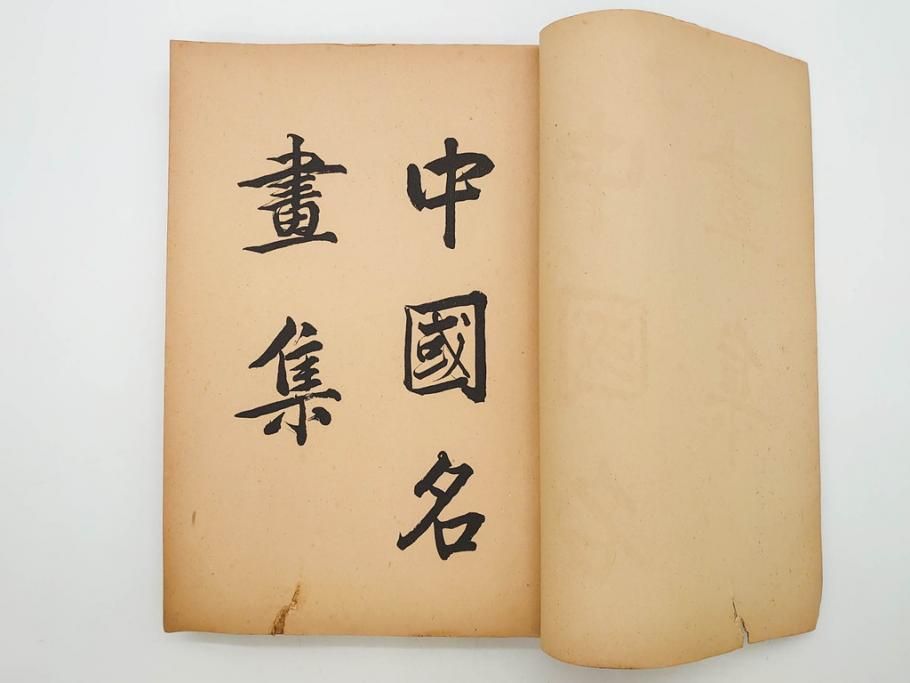 中國名
畫集